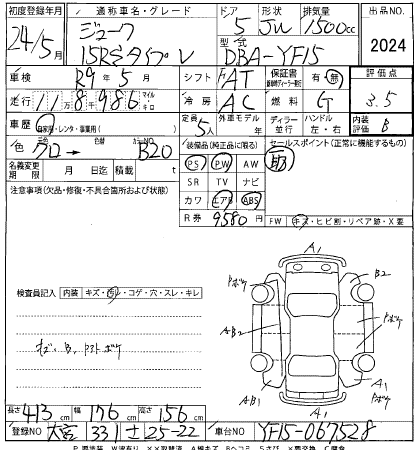 初度登録年月 通称車名・グレード ドア 形状 排気量 出品NO.
24/5月 ジューク 5 JW 1500cc
15RSタイプV 型式 2024
DBA-YF15
車検 R9年5月 シフト FAT 保証書 有・無 評価点
走行 11万8千986 マイル キロ 冷房 AC 燃料 G 3.5
車歴 自家用・レンタ・事業用( ) 定員 5人 外車モデル 年 ディラー 並行 ハンドル 左・右 内装評価 B
色 クロ→ 色替 カラーNO. B20 装備品(純正品に限る) セールスポイント(正常に機能するもの)
名義変更期限 月 日迄 積載 t PS PW AW
注意事項(欠品・修復・不具合箇所および状態) SR TV ナビ
カワ エアB ABS
R券 9580円 FW キズ・ヒビ割・リペア跡・X要
検査員記入 内装 キズ・汚レ・コゲ・穴・スレ・キレ
A1
Pボケ B2
Pボケ
AB2 Pボケ
AB1 A1
A1
キズ、B、アストボケ
長さ 413cm 幅 176cm 高さ 156cm
登録NO 大宮 331 さ 25-22 車台NO YF15-067528